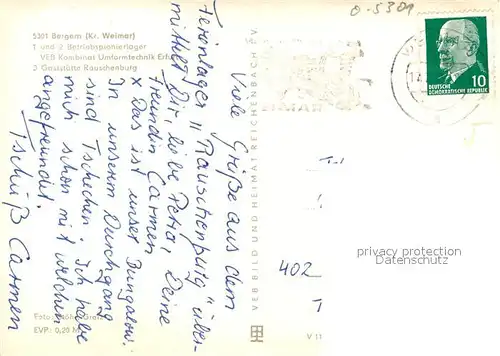 o-5301
5301 Bergern (Kr. Weimar)
1 und 2 Betriebspionierlager
VEB Kombinat Umformtechnik Erfu
3 Gaststätte Rauschenburg
DEUTSCHE
DEMOKRATISCHE REPUBLIK
10
Viele Grüße aus dem
Ferienlager "Rauschenburg" über-
mittelt Dir, liebe Petra, Deine
Freundin Carmen.
x Das ist unser Bungalow.
In unserem Durchgang
sind Tschechen. Ich habe
mich schon mit welchen
angefreundet.
Tschüß Carmen
VEB BILD UND HEIMAT REICHENBACH
402
privacy protection
Datenschutz
Foto:
EVP: 0,20 M
V 11